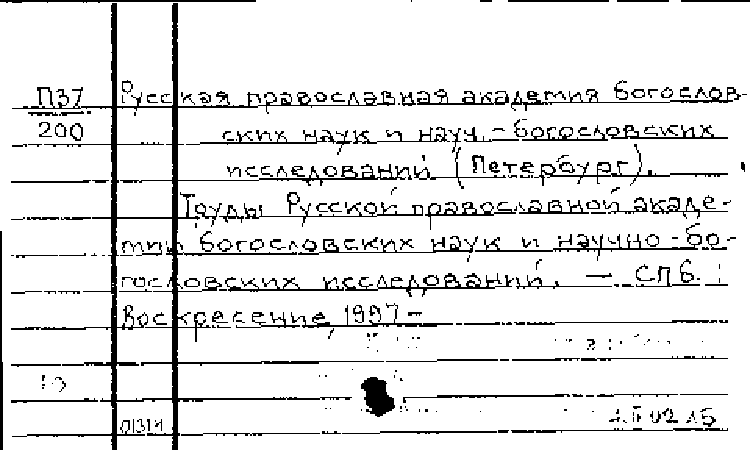 П37 Русская православная академия богослов-
200 ских наук и науч.-богословских
исследований (Петербург).
Труды Русской православной акаде-
мии богословских наук и научно-бо-
гословских исследований. — СПб. :
Воскресение, 1997 -